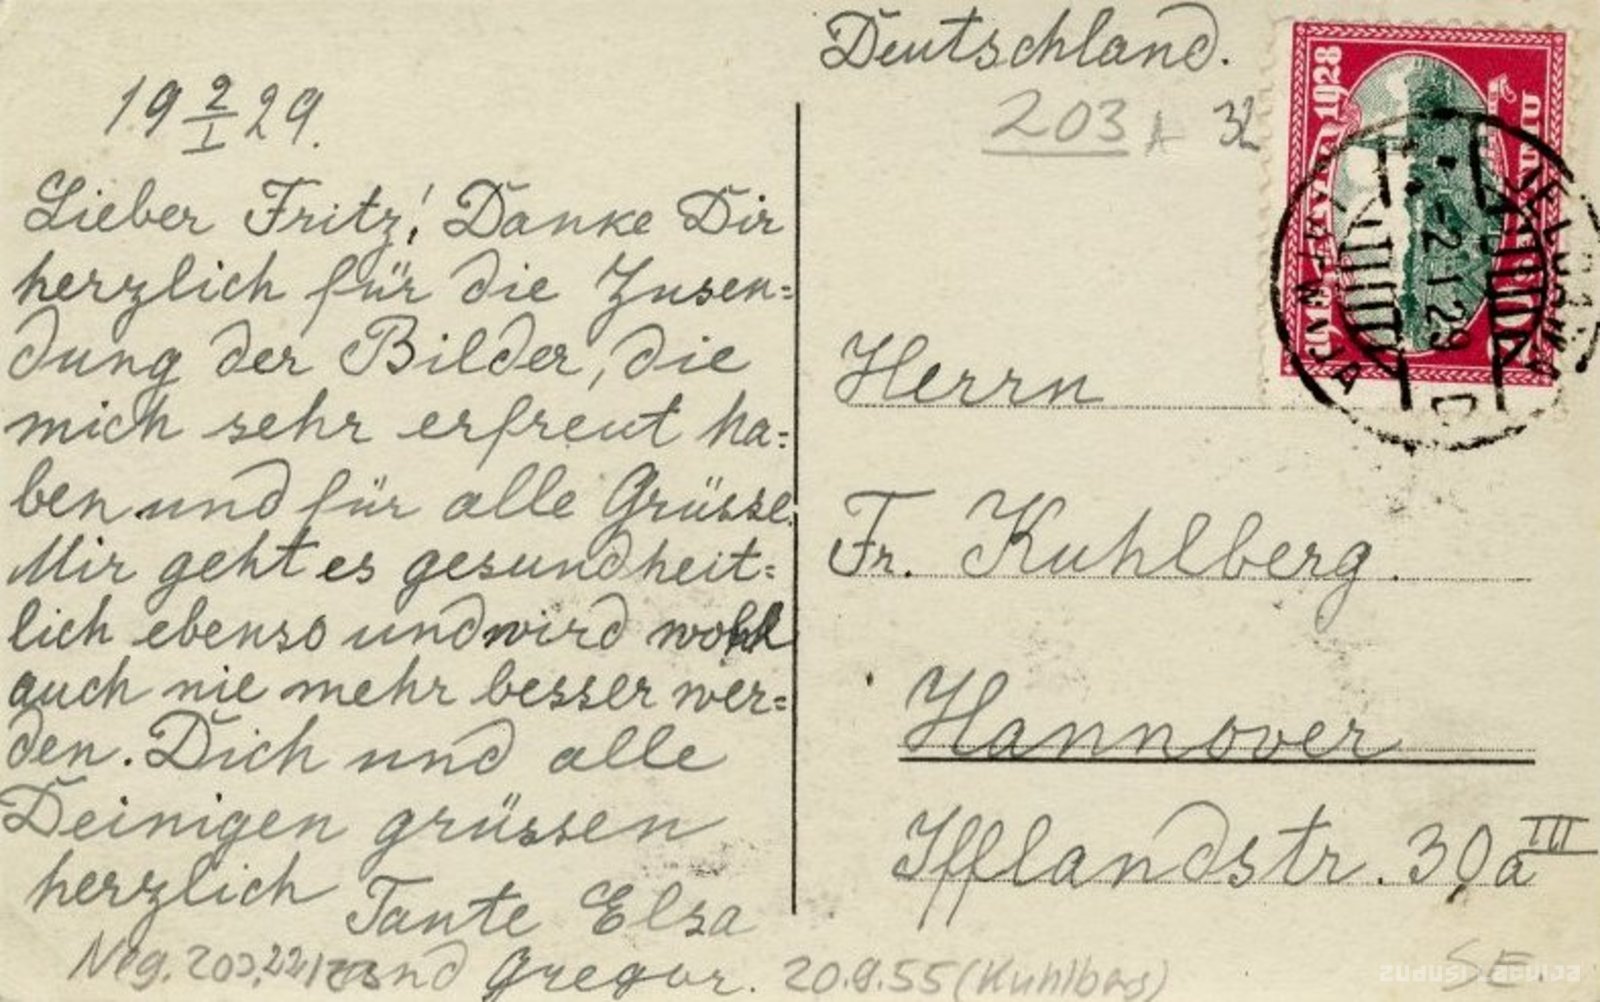 19 2/I 29.
Lieber Fritz! Danke Dir
herzlich für die Zusen=
dung der Bilder, die
mich sehr erfreut ha=
ben und für alle Grüsse.
Mir geht es gesundheit=
lich ebenso und wird wohl
auch nie mehr besser wer=
den. Dich und alle
Deinigen grüssen
herzlich Tante Elsa
und Gregor.
Neg. 20.8.55 (Kuhlberg)
Deutschland.
203 A 32
LATVIJA 1928
-2 1 29
Herrn
Fr. Kuhlberg.
Hannover
Ifflandstr. 30a III
S.E.
zudusi latvija